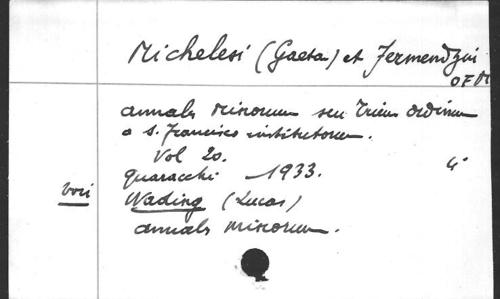 Michelesi (Gaeta) et Fermendzin
OFM
annales Minorum seu Trium Ordinum
a S. Francisco institutorum.
Vol 20.
Quaracchi 1933. 4°
voir Wading (Lucas)
annales Minorum.